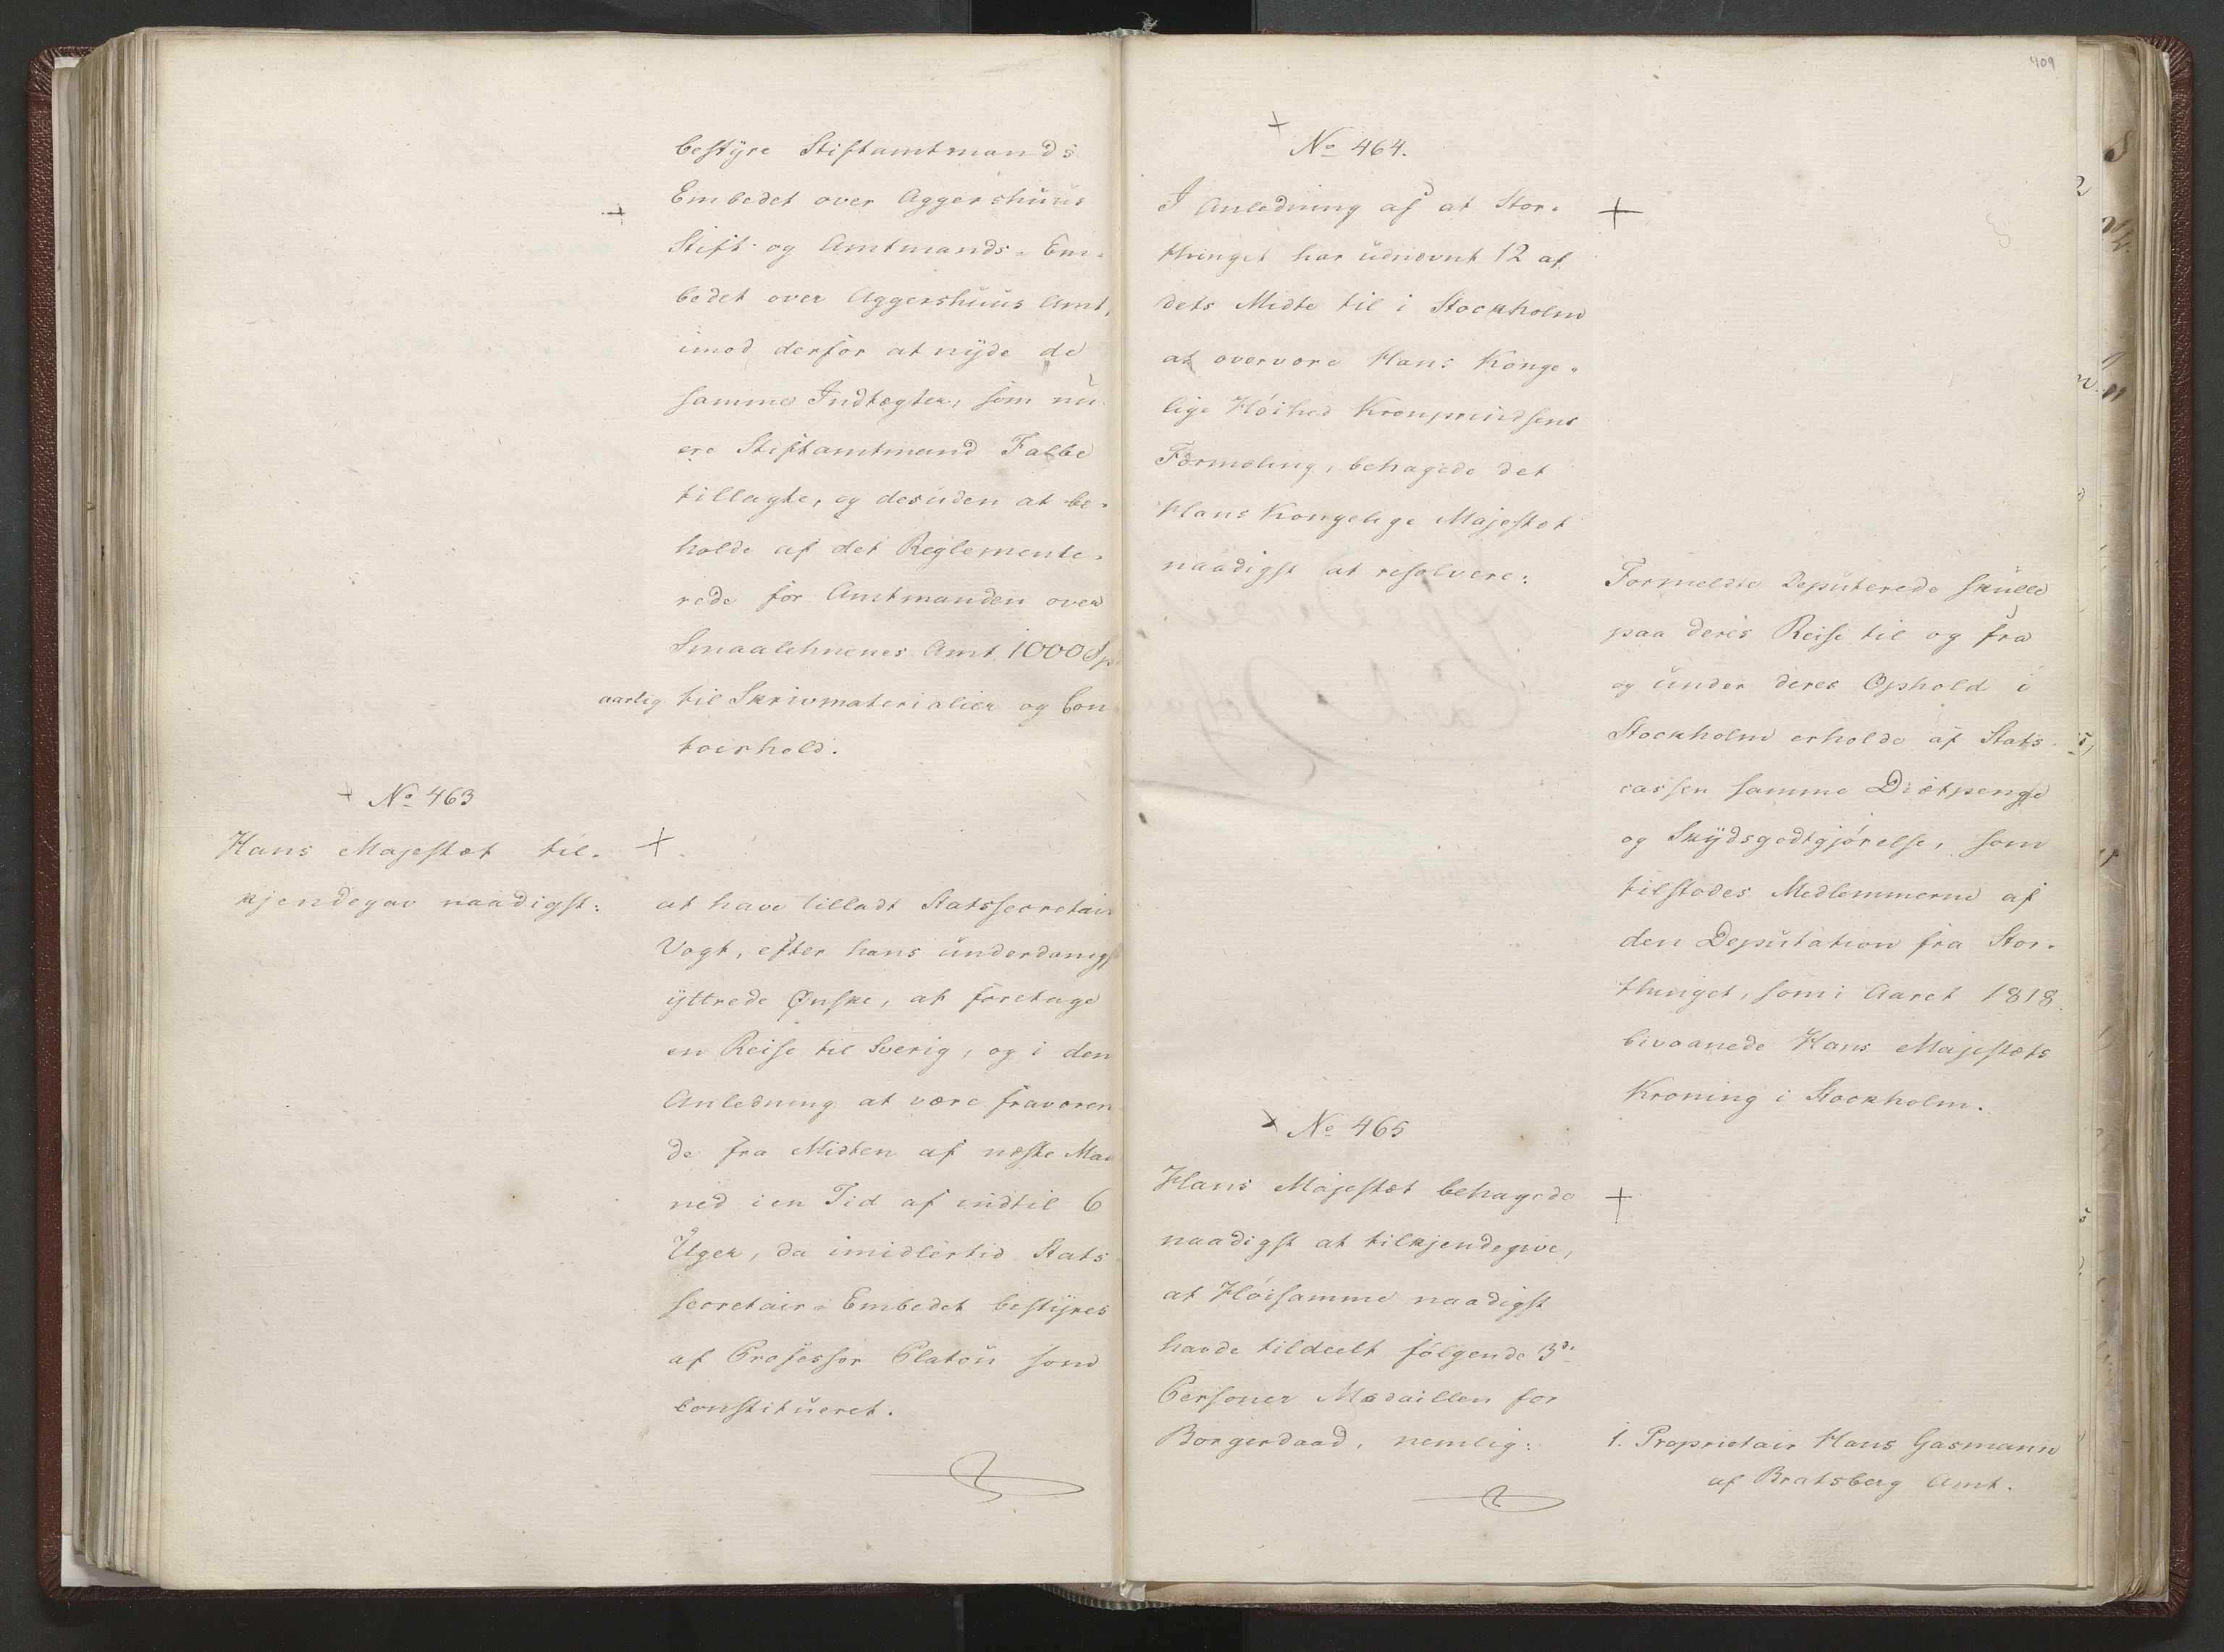 bestÿre Stiftamtmands
Embedet over Aggershuus
Stift- og Amtmands-Em-
bedet over Aggershuus Amt,
imod derfor at nÿde de
samme Indtægter, som nu
ere Stiftamtmand Falbe
tillagte, og desuden at be-
holde af det Reglemente-
rede for Amtmanden over
Smaalehnenes Amt 1000 Sp
aarlig til Skrivmaterialier og Con
toirhold.
No 463
Hans Majestæt til-
kjendegav naadigst:
at have tilladt Statssecretair
Vogt, efter hans underdanigst
ÿttrede Ønske, at foretage
en Reise til Sverig, og i den
Anledning at være fraværen
de fra Midten af næste Maa
ned i en Tid af indtil 6
Uger, da imidlertid Stats
secretair-Embedet bestÿres
af Professor Platou som
constitueret.
409
No 464.
I Anledning af at Stor-
thinget har udnævnt 12 af
dets Midte til i Stockholm
at overvære Hans Konge-
lige Høihed Kronprindsens
Formæling, behagede det
Hans Kongelige Majestæt
naadigst at resolvere:
Formeldte Deputerede skulle
paa deres Reise til og fra
og under deres Ophold i
Stockholm erholde af Stats
cassen samme Diætpenge
og Skÿdsgodtgjørelse, som
tilstodes Medlemmerne af
den Deputation fra Stor-
thinget, som i Aaret 1818
bivaanede Hans Majestæts
Kroning i Stockholm.
No 465
Hans Majestæt behagede
naadigst at tilkjendegive,
at Høisamme naadigst
havde tildeelt følgende 3de
Personer Medaillen for
Borgerdaad, nemlig:
1. Proprietair Hans Gasmann
af Bratsberg Amt.